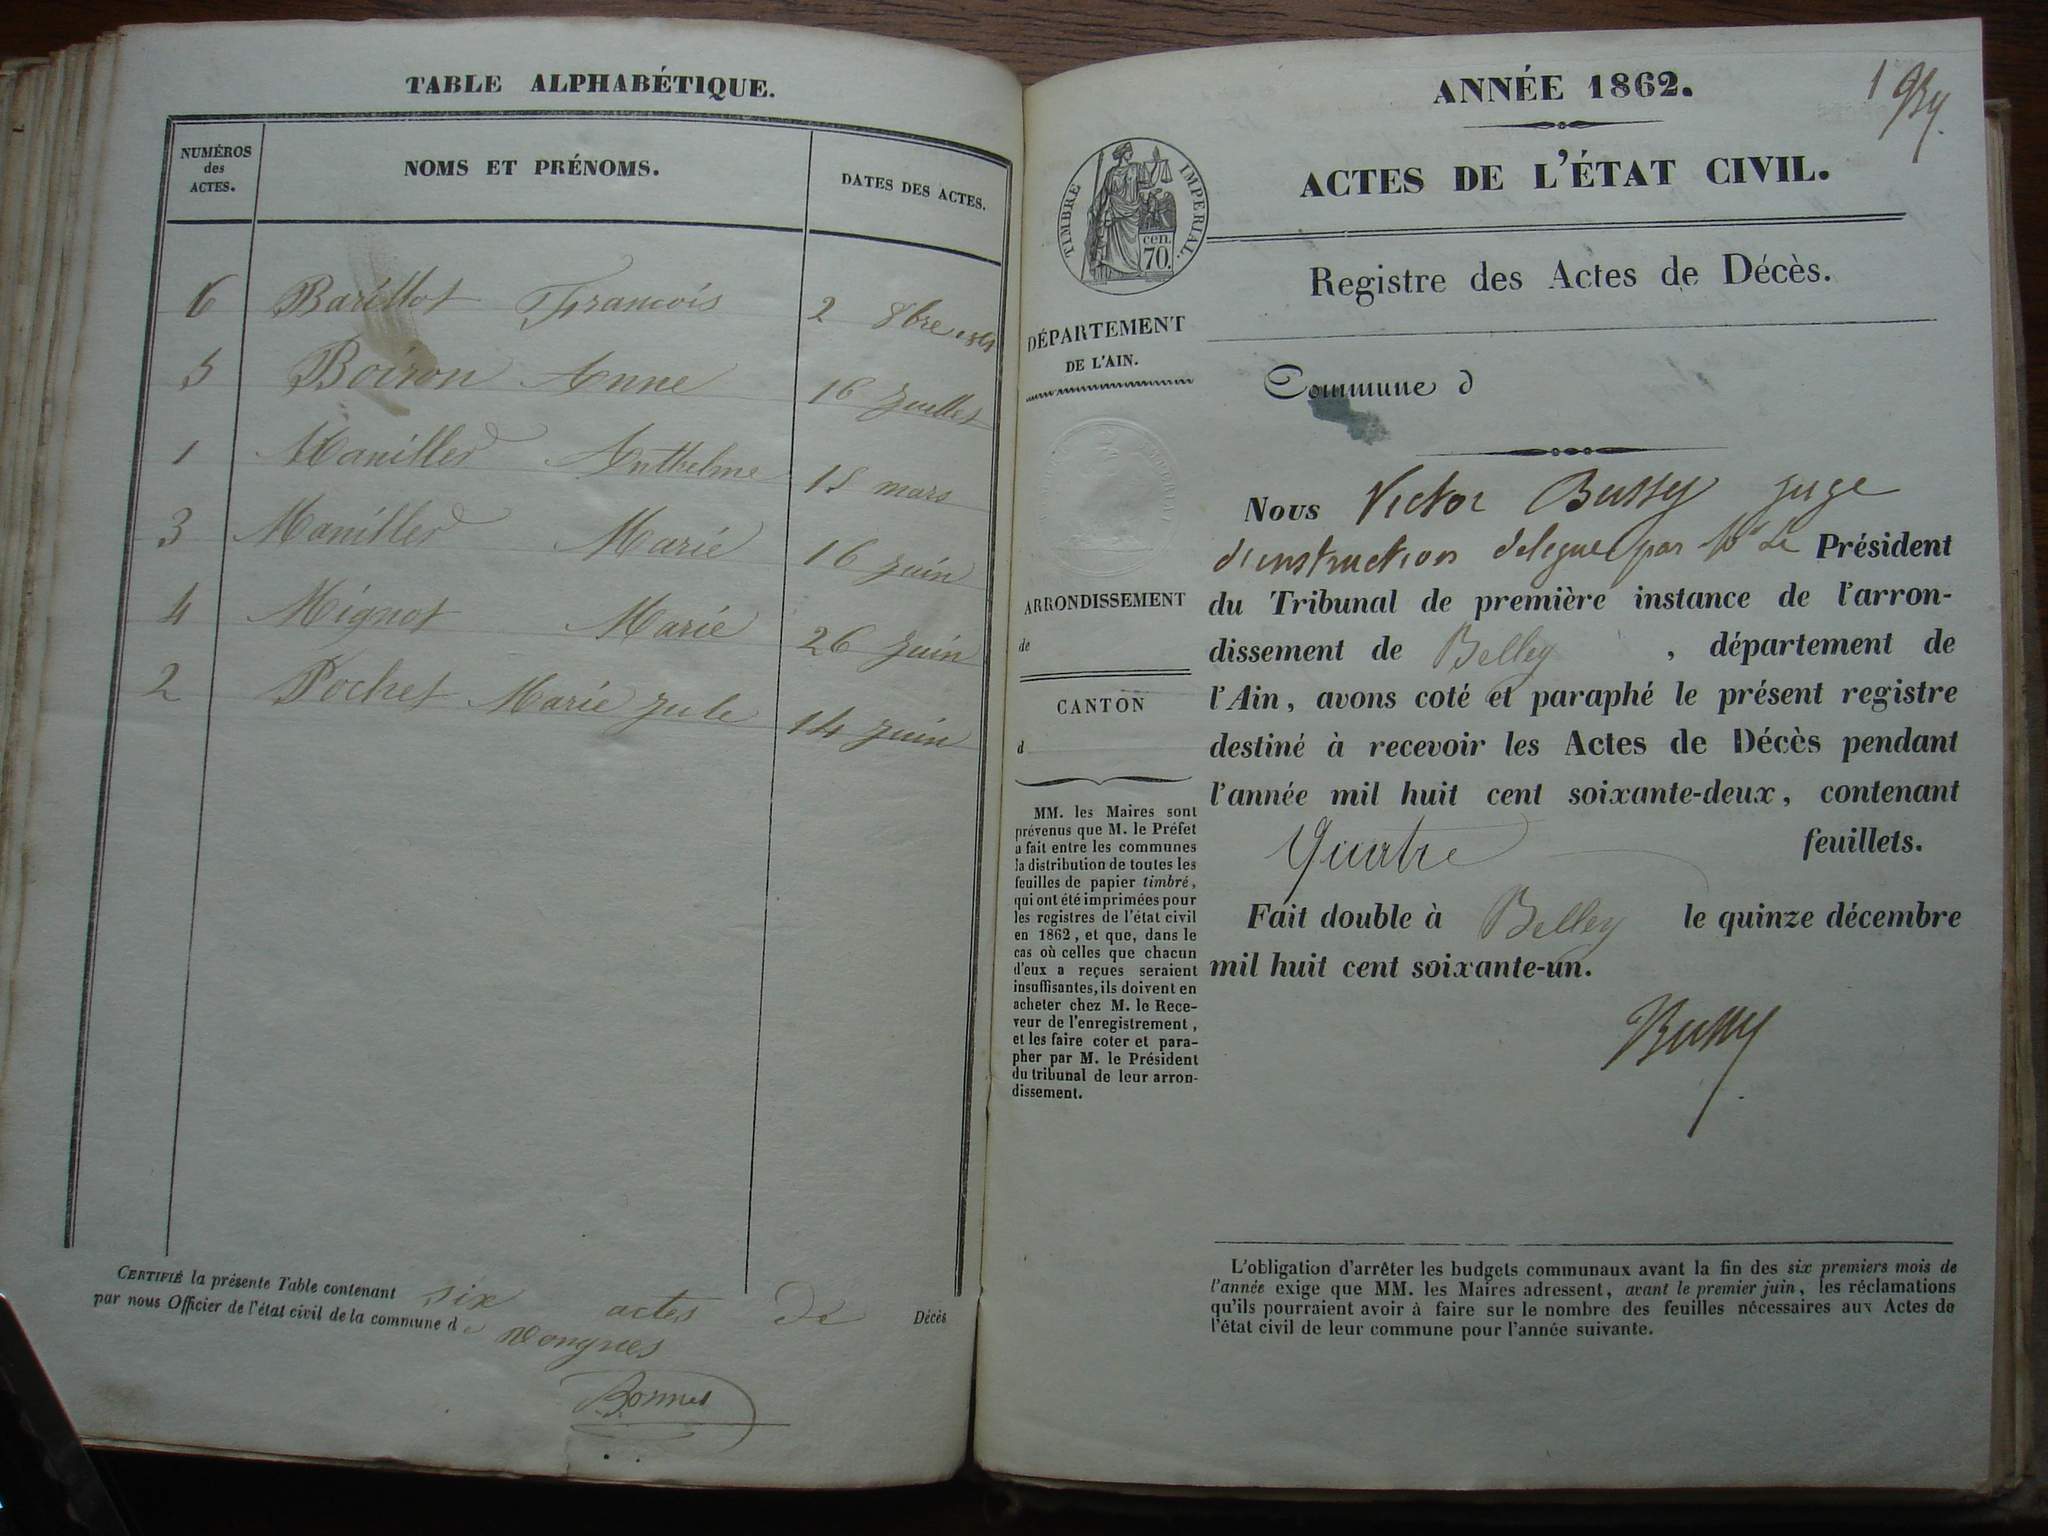 TABLE ALPHABÉTIQUE.
NUMÉROS
des
ACTES.
NOMS ET PRÉNOMS.
DATES DES ACTES.
6 Barillot François 2 8bre 1861
5 Boiron Anne 16 Juillet
1 Maniller Anthelme 15 mars
3 Maniller Marie 16 juin
4 Mignot Marie 26 juin
2 Pochet Marie Jule 14 juin
CERTIFIÉ la présente Table contenant six actes de Décès
par nous Officier de l'état civil de la commune de Vongnes
Bonnet
ANNÉE 1862.
1
ACTES DE L'ÉTAT CIVIL.
TIMBRE IMPERIAL.
cen.
70.
Registre des Actes de Décès.
DÉPARTEMENT
DE L'AIN.
Commune d
ARRONDISSEMENT
de
CANTON
d
MM. les Maires sont
prévenus que M. le Préfet
a fait entre les communes
la distribution de toutes les
feuilles de papier timbré,
qui ont été imprimées pour
les registres de l'état civil
en 1862, et que, dans le
cas où celles que chacun
d'eux a reçues seraient
insuffisantes, ils doivent en
acheter chez M. le Rece-
veur de l'enregistrement,
et les faire coter et para-
pher par M. le Président
du tribunal de leur arron-
dissement.
Nous Victor Bussy juge
d'instruction delegué par Mr Le Président
du Tribunal de première instance de l'arron-
dissement de Belley, département de
l'Ain, avons coté et paraphé le présent registre
destiné à recevoir les Actes de Décès pendant
l'année mil huit cent soixante-deux, contenant
Quatre feuillets.
Fait double à Belley le quinze décembre
mil huit cent soixante-un.
Bussy
L'obligation d'arrêter les budgets communaux avant la fin des six premiers mois de
l'année exige que MM. les Maires adressent, avant le premier juin, les réclamations
qu'ils pourraient avoir à faire sur le nombre des feuilles nécessaires aux Actes de
l'état civil de leur commune pour l'année suivante.